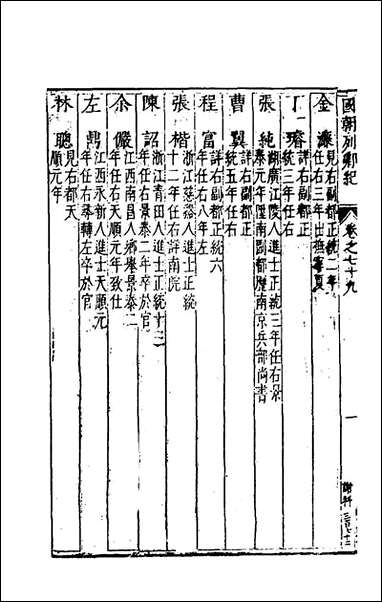 國朝列卿紀
卷之七十九
一
金濂
見右副都正統二年
任右三年出撫寧夏
丁璿
詳右副都正
統三年任右
張純
湖廣江陵人進士正統三年任右景
泰元年陞南副都歷南京兵部尚書
曹翼
詳右副都正
統五年任右
程富
詳右副都正統六
年任右八年左
張楷
浙江慈谿人進士正統
十二年任右詳南院
陳詔
浙江青田人進士正統十三
年任右景泰二年卒於官
余儼
江西南昌人鄉舉景泰二
年任右天順元年致仕
左鼎
江西永新人進士天順元
年任右尋轉左卒於官
林聰
見右都天
順元年